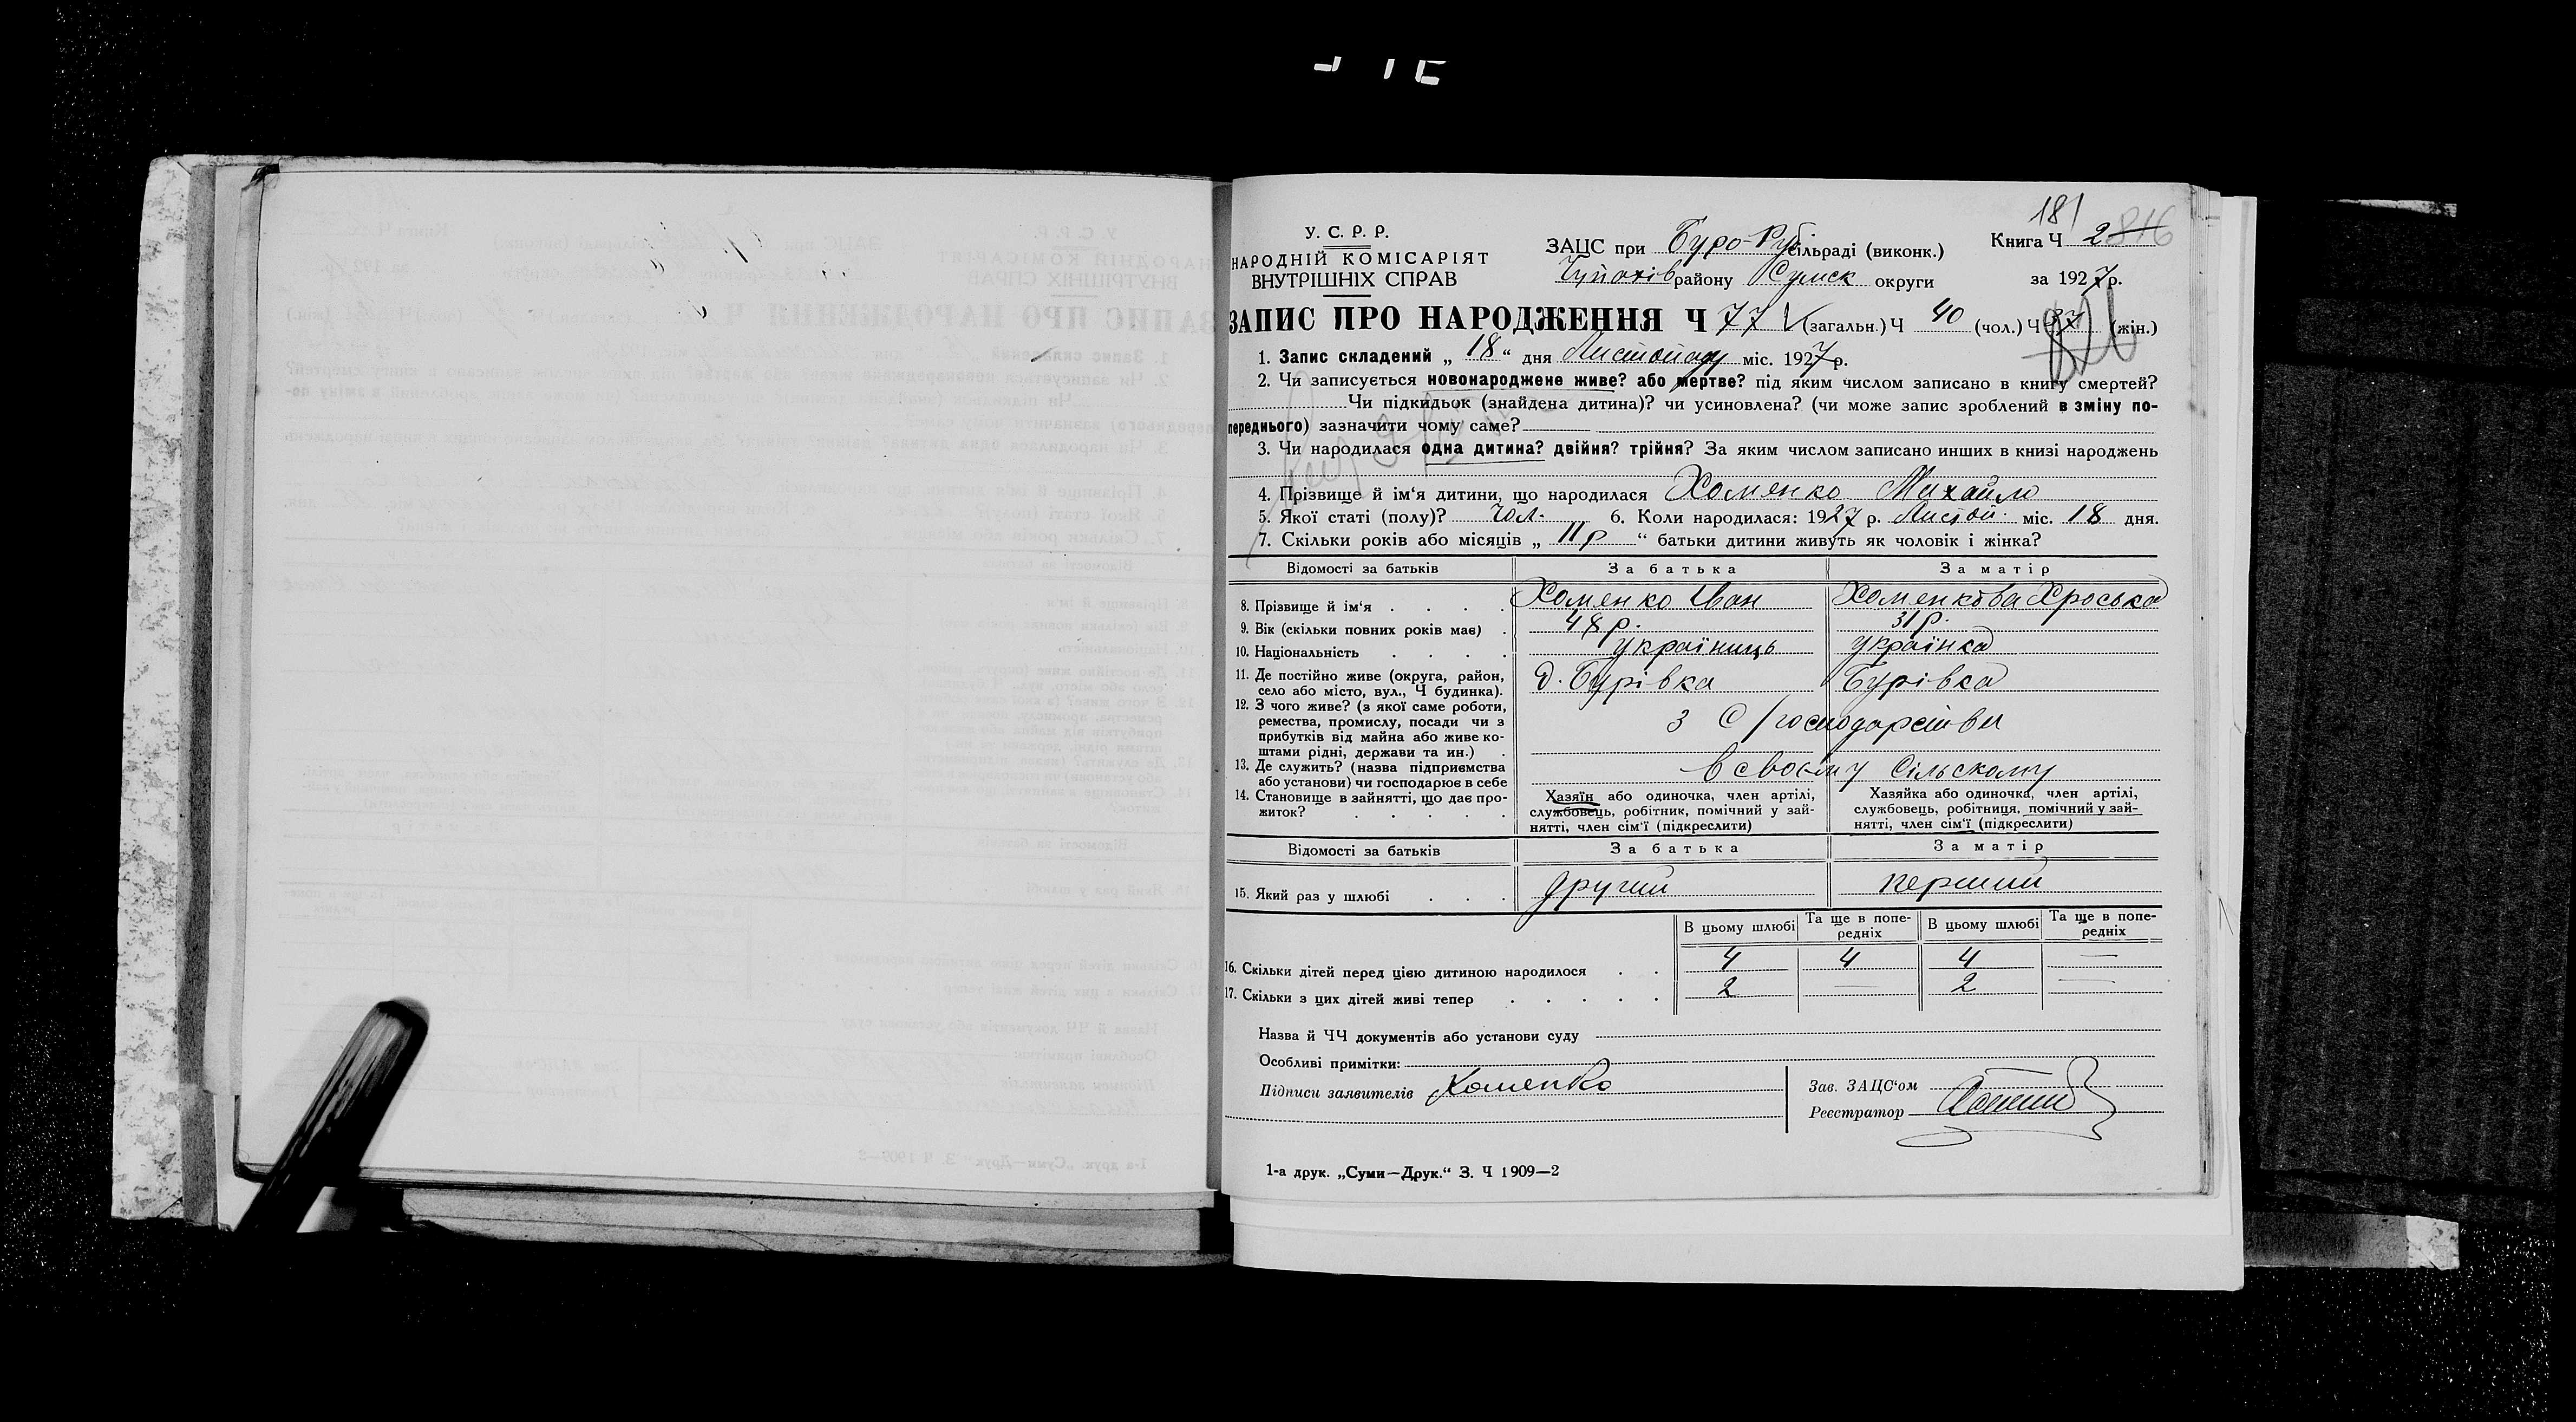 181
У. С. Р. Р.
НАРОДНІЙ КОМІСАРІЯТ
ВНУТРІШНІХ СПРАВ
ЗАЦС при Буро-Руб сільраді (виконк.)
Чупахів району Сумск округи
Книга Ч 2 816
за 1927 р.
ЗАПИС ПРО НАРОДЖЕННЯ Ч 77 (загальн.) Ч 40 (чол.) Ч 37 (жін.)
1. Запис складений „ 18 “ дня Листопаду міс. 1927 р.
2. Чи записується новонароджене живе? або мертве? під яким числом записано в книгу смертей?
Чи підкидьок (знайдена дитина)? чи усиновлена? (чи може запис зроблений в зміну по-
переднього) зазначити чому саме?
3. Чи народилася одна дитина? двійня? трійня? За яким числом записано инших в книзі народжень
4. Прізвище й ім‘я дитини, що народилася Хоменко Михайло
5. Якої статі (полу)? чол. 6. Коли народилася: 1927 р. Листоп. міс. 18 дня.
7. Скільки років або місяців „ 11 р “ батьки дитини живуть як чоловік і жінка?
Відомості за батьків За батька За матір
8. Прізвище й ім‘я . . . . Хоменко Іван Хоменкова Хроська
9. Вік (скільки повних років має) . 48 р. 31 р.
10. Національність . . . . українць українка
11. Де постійно живе (округа, район,
село або місто, вул., Ч будинка). д. Бурівка Бурівка
12. З чого живе? (з якої саме роботи,
ремества, промислу, посади чи з
прибутків від майна або живе ко-
штами рідні, держави та ин.) . з С/господарства
13. Де служить? (назва підприємства
або установи) чи господарює в себе в своєму Сільскому
14. Становище в зайнятті, що дає про-
житок? . . . . .
Хазяїн або одиночка, член артілі,
службовець, робітник, помічний у зай-
нятті, член сім‘ї (підкреслити)
Хазяйка або одиночка, член артілі,
службовець, робітниця, помічний у зай-
нятті, член сім‘ї (підкреслити)
Відомості за батьків За батька За матір
15. Який раз у шлюбі . . . другий перший
В цьому шлюбі Та ще в попе-
редніх В цьому шлюбі Та ще в попе-
редніх
16. Скільки дітей перед цією дитиною народилося . . 4 4 4 —
17. Скільки з цих дітей живі тепер . . . . . 2 — 2 —
Назва й ЧЧ документів або установи суду
Особливі примітки:
Підписи заявителів Хоменко
Зав. ЗАЦС‘ом
Реєстратор
1-а друк. „Суми—Друк.“ З. Ч 1909—2